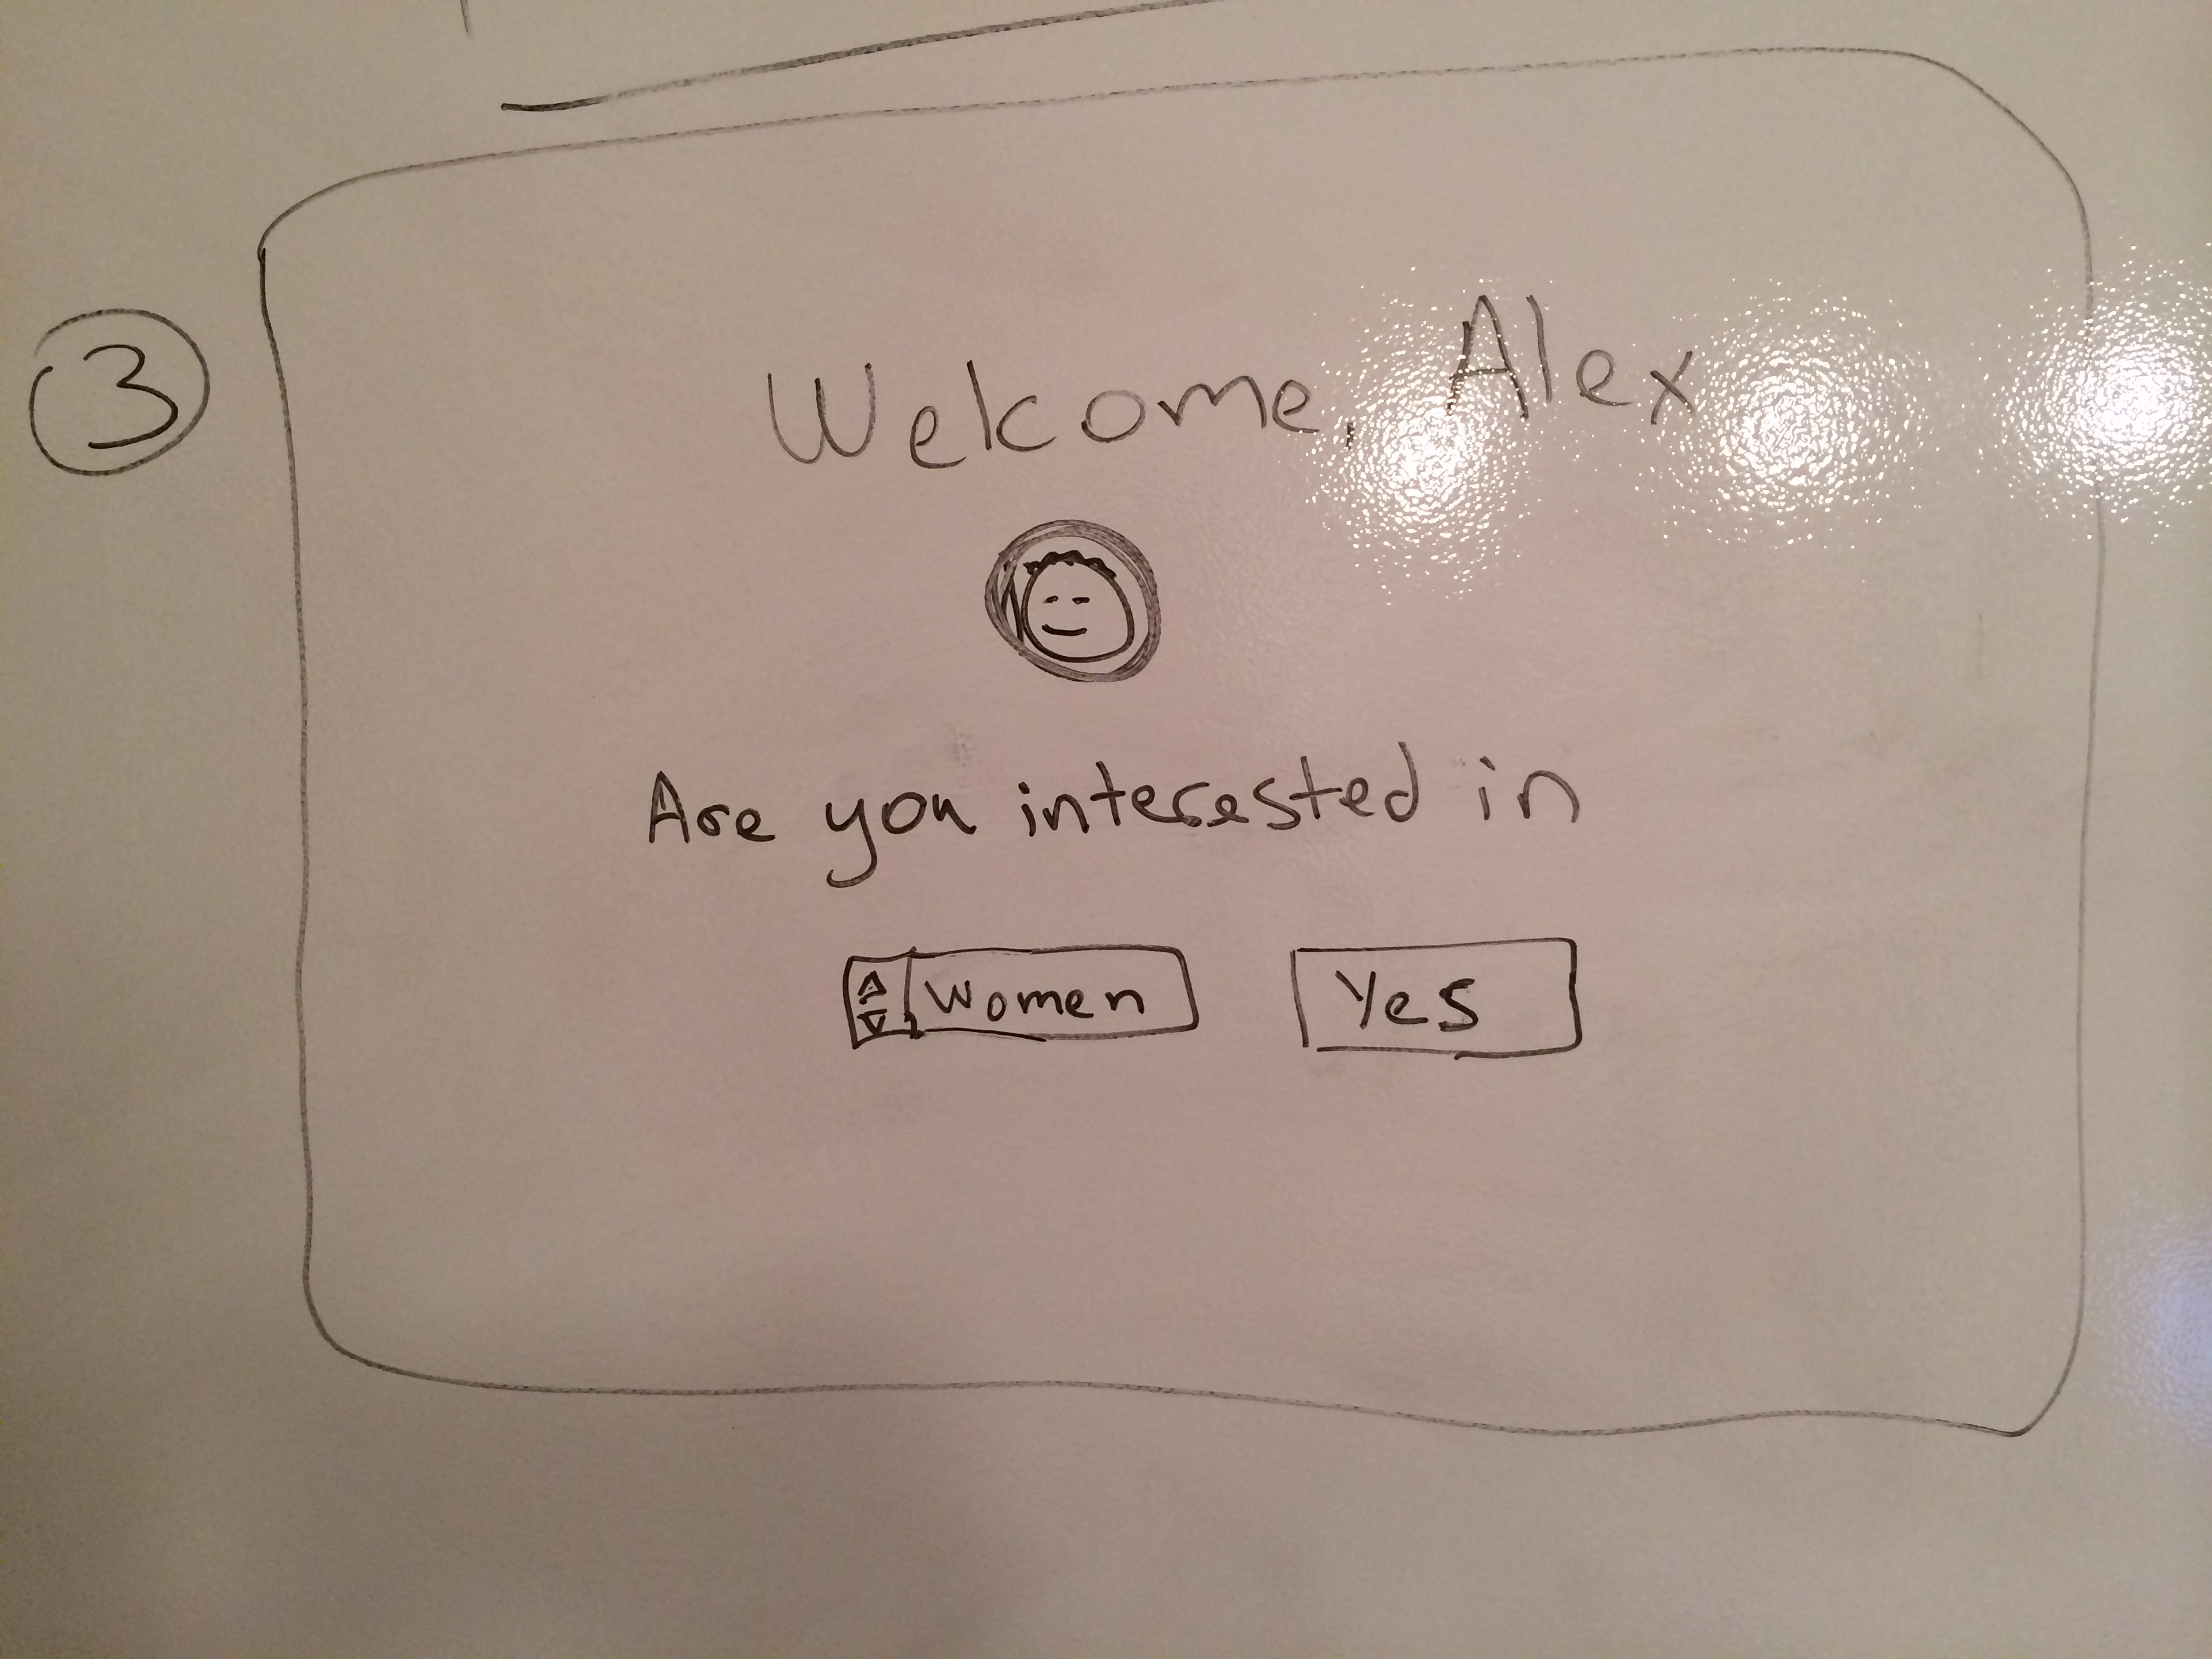 3
Welcome, Alex
Are you interested in
Women Yes